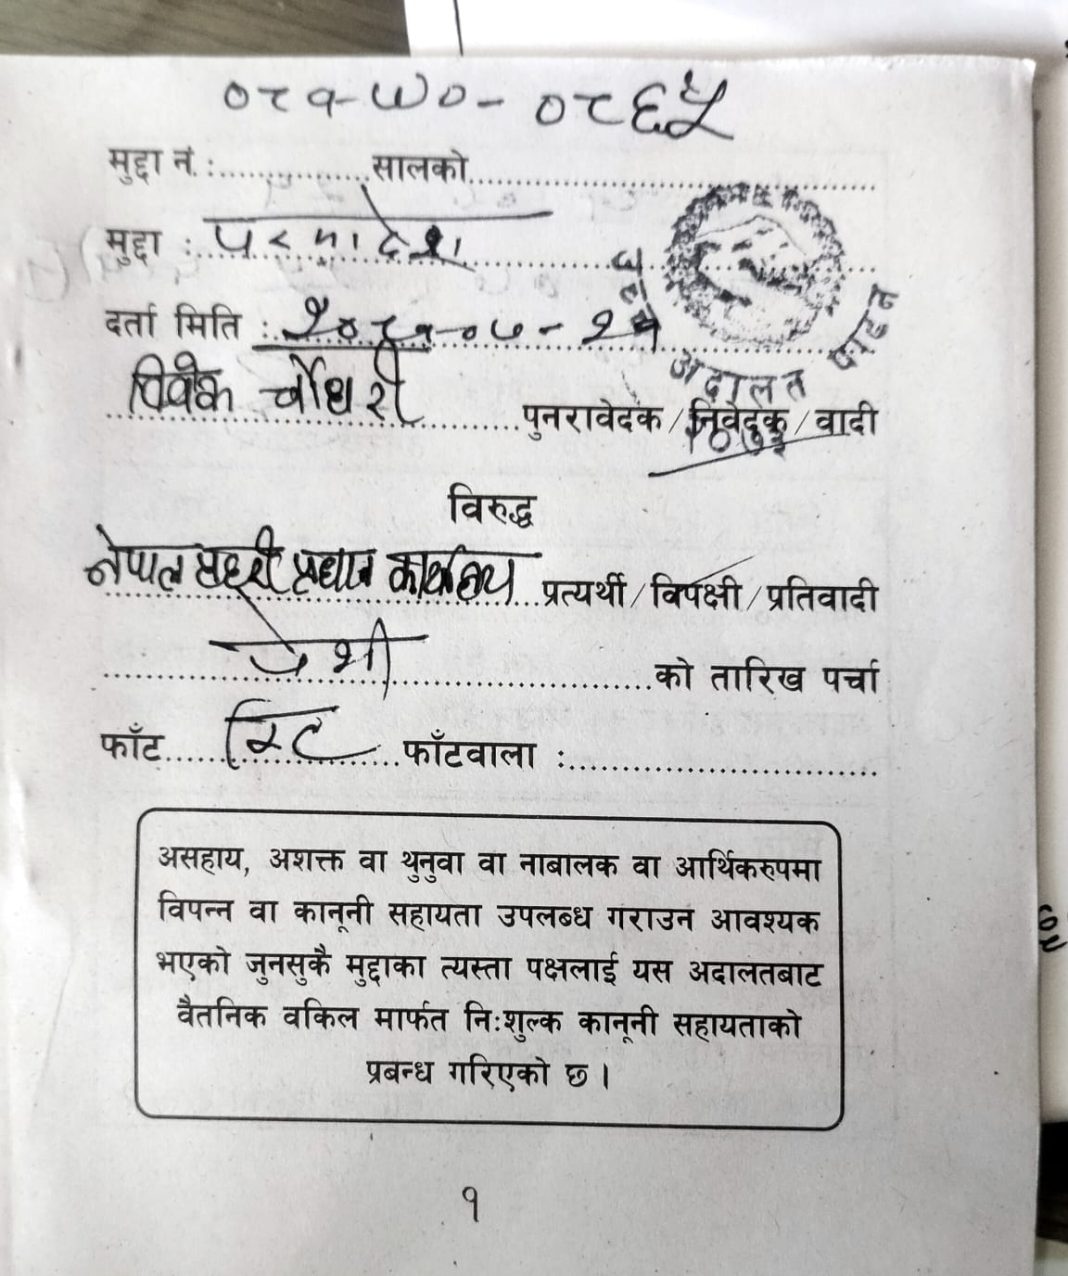 ०८१-WO-०८६५
मुद्दा नं.:...............सालको.......................................
मुद्दा :..परमादेश.......................................
दर्ता मिति :..२०८१-०७-२१
अदालत पाटन
विवेक चौधरी.........पुनरावेदक/निवेदक/वादी
विरुद्ध
नेपाल प्रहरी प्रधान कार्यालय...प्रत्यर्थी/विपक्षी/प्रतिवादी
पेशी.............................को तारिख पर्चा
फाँट......रिट......फाँटवाला :...............................
असहाय, अशक्त वा थुनुवा वा नाबालक वा आर्थिकरुपमा
विपन्न वा कानूनी सहायता उपलब्ध गराउन आवश्यक
भएको जुनसुकै मुद्दाका त्यस्ता पक्षलाई यस अदालतबाट
वैतनिक वकिल मार्फत निःशुल्क कानूनी सहायताको
प्रबन्ध गरिएको छ ।
१